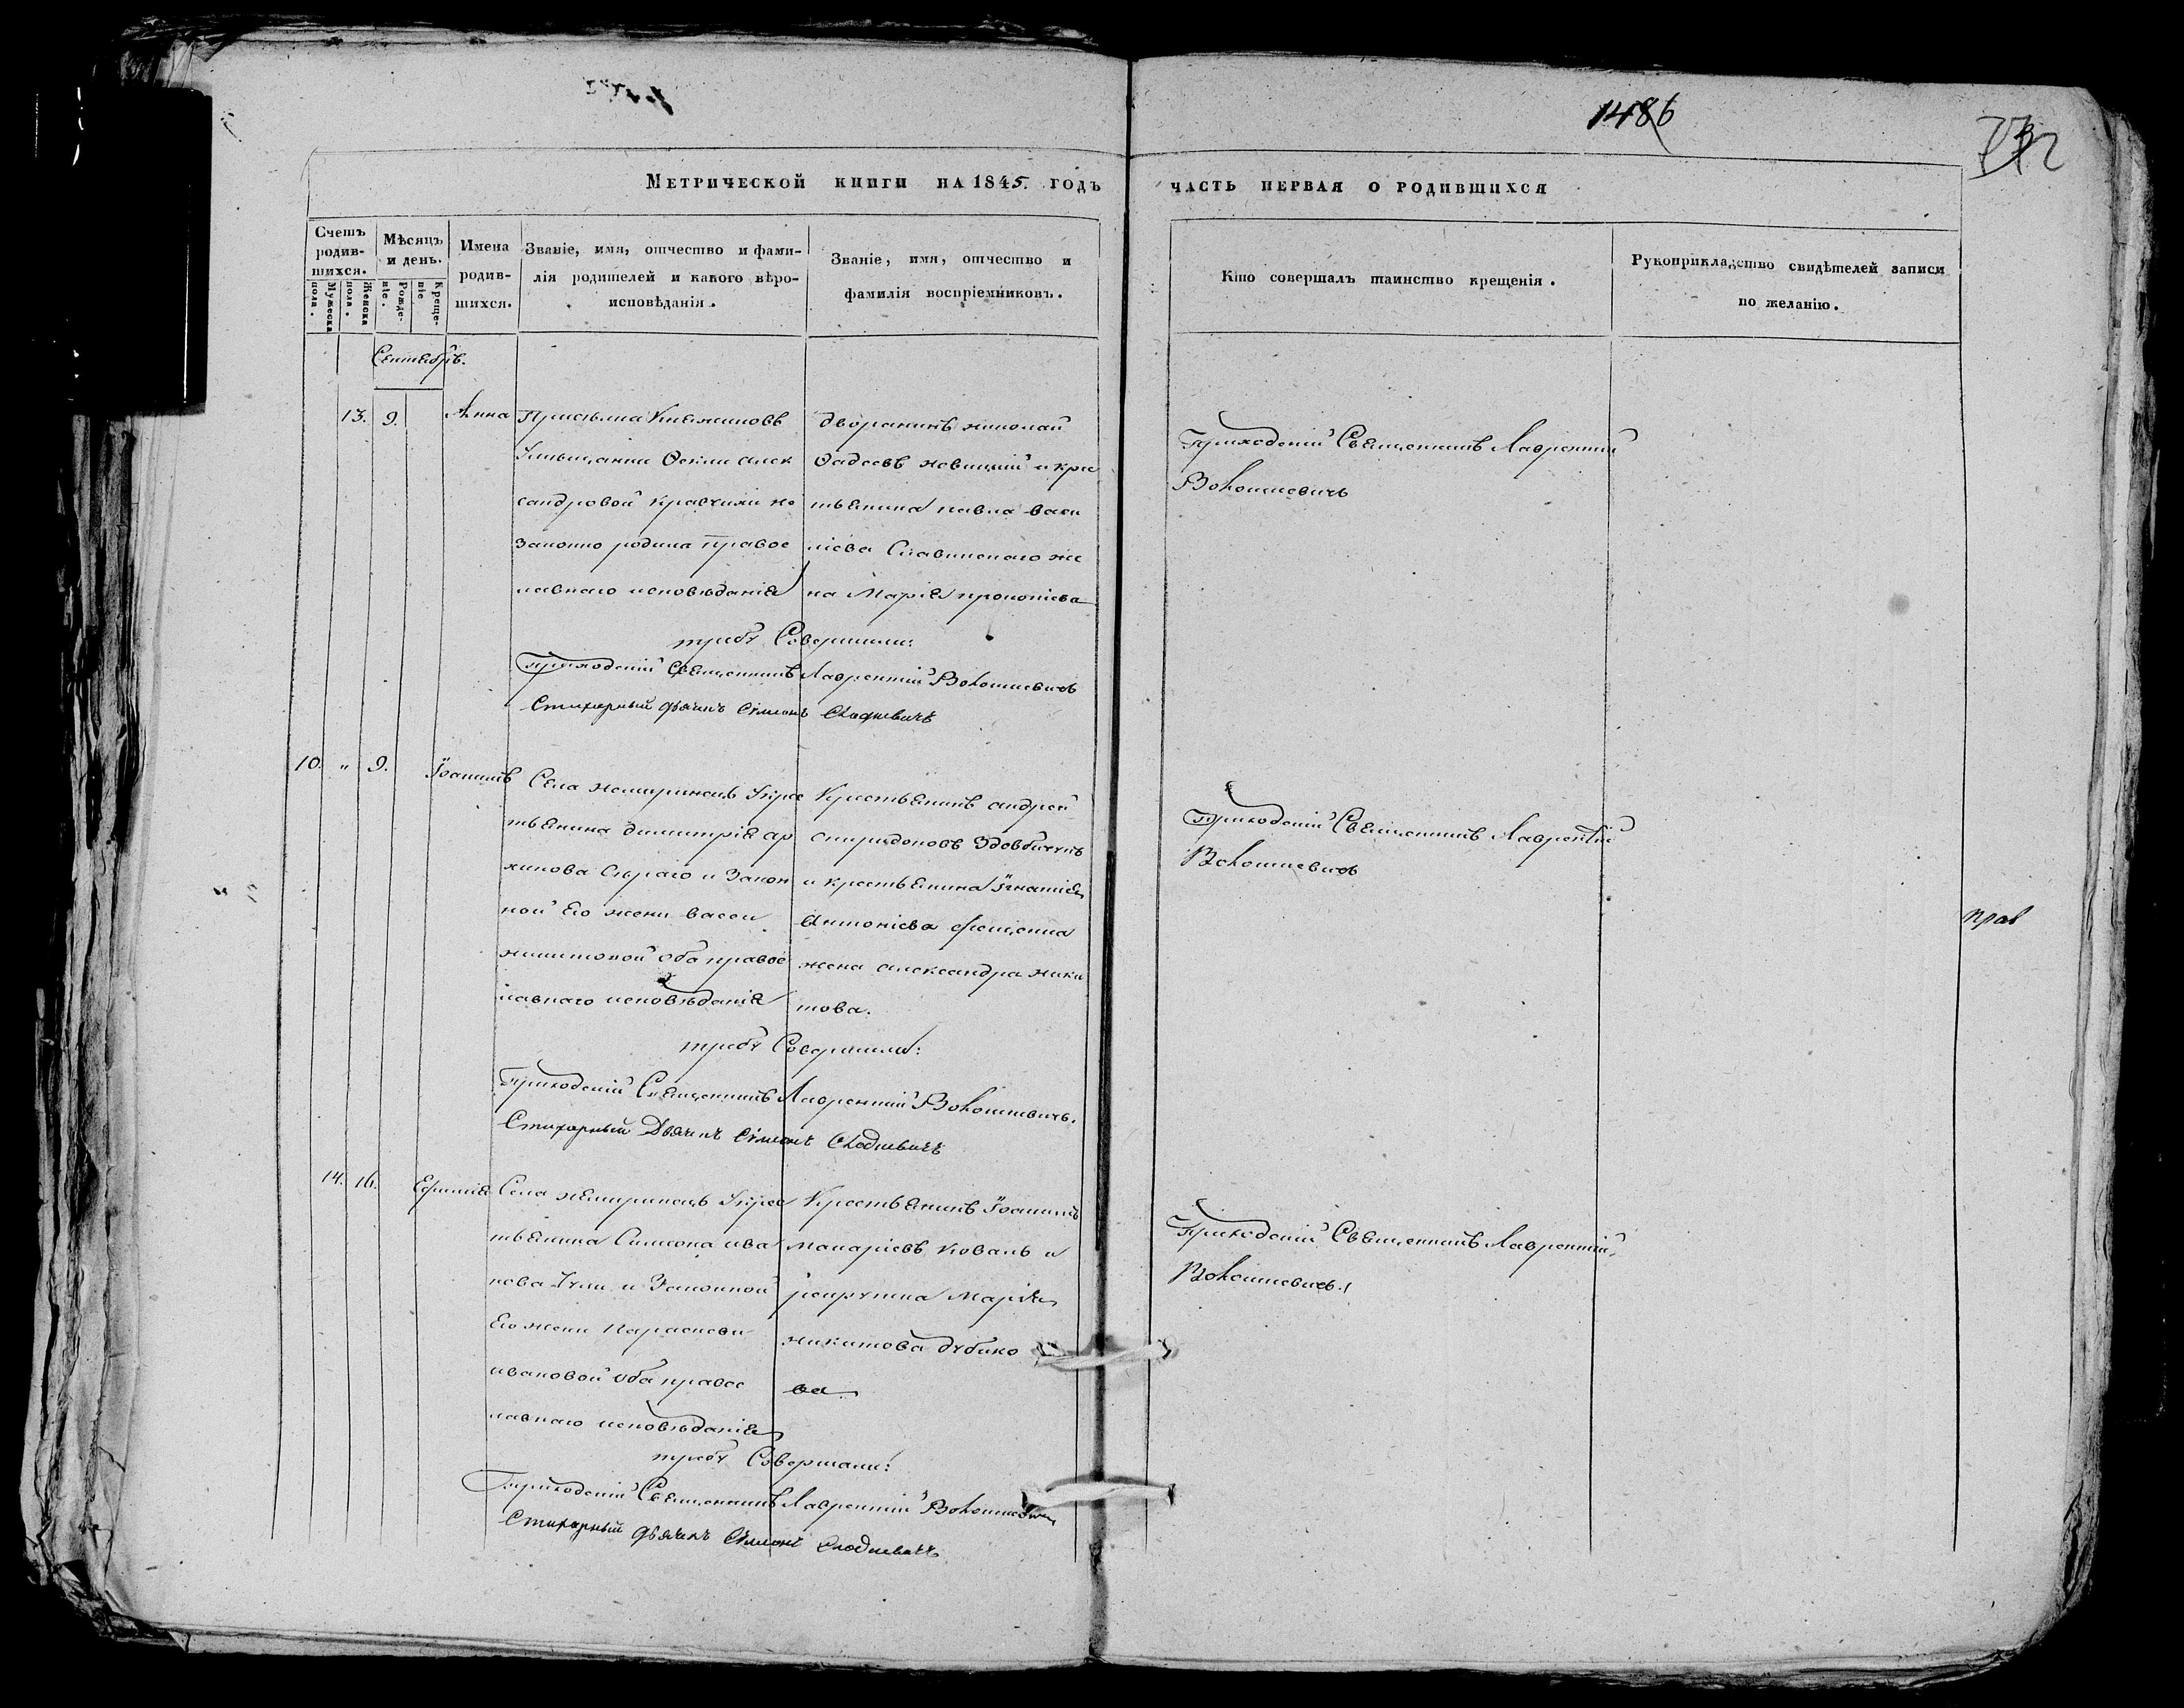 1486
732
Метрической книги на 1845. годъ
часть первая о родившихся
Счетъ родившихся.
Мужеска пола.
Женска пола.
Мѣсяцъ и день.
Рожденіе.
Крещеніе
Имена родившихся.
Званіе, имя, отчество и фамилія родителей и какого вѣроисповѣданія.
Званіе, имя, отчество и фамилія воспріемниковъ.
Кто совершалъ таинство крещенія.
Рукоприкладство свидѣтелей записи по желанію.
Сентябрь.
13. 9. Анна
Феклы алек
сандровой
законно родила правос
лавнаго исповѣданія
дворянинъ николай
Фадеевъ новицкій и крес
тьянина павла васи
ліева Славинскаго же
на Марія прокопіева
Приходскій Священникъ Лаврентій
Волошкевичъ
требу Совершали:
Приходскій Священникъ Лаврентій Волошкевичъ
Стихарный дьячекъ Сѵмеонъ
10. " 9. Іоаннъ
Села немиринецъ крес
тьянина димитрія ар
хипова Сѣраго и Закон
ной его жены васси
никитовой оба правос
лавнаго исповѣданія
Крестьянинъ андрей
спиридоновъ
и крестьянина Игнатія
Антоніева
жена александра ники
това.
Приходскій Священникъ Лаврентій
Волошкевичъ
прав
требу Совершали:
Приходскій Священникъ Лаврентій Волошкевичъ.
Стихарный Дьячекъ Сѵмеонъ
14. 16. Ефимія
Села немиринецъ крес
тьянина Симеона ива
нова и Законной
Его жены Параскеви
ивановой оба правос
лавнаго исповѣданія
Крестьянинъ Іоаннъ
макаріевъ Коваль и
рекрутка Марія
никитова дубико
ва
Приходскій Священникъ Лаврентій
Волошкевичъ.
требу Совершали:
Приходскій Священникъ Лаврентій Волошкевичъ
Стихарный дьячекъ Сѵмеонъ